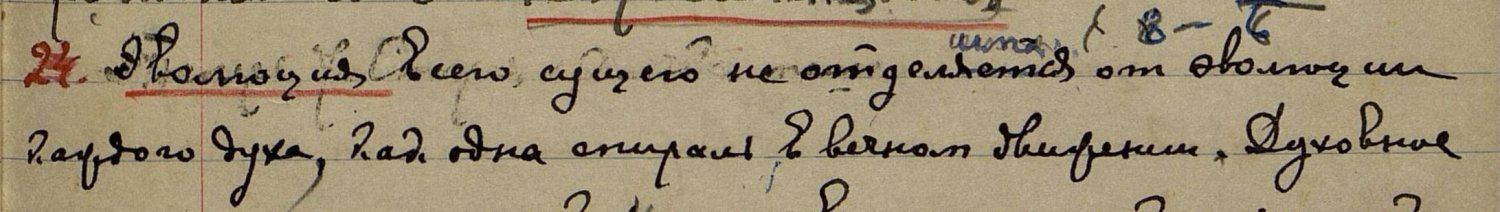 8 — б
24. Эволюция Всего сущего не отделяется от эволюции
каждого духа, как одна спираль в вечном движении. Духовное